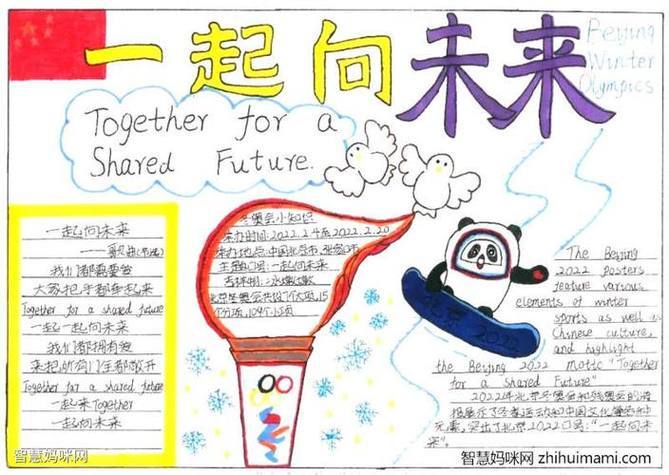 一起向未来
Beijing
Winter
Olympics
Together for a
Shared Future.
一起向未来
我们都需要爱
大家把手都牵起来
Together for a shared future
一起一起向未来
我们都拥有爱
来把所有门全都敞开
Together for a shared future
一起来Together
一起向未来
冬奥会小知识
举办时间:2022.2.4至2022.2.20
举办地点:中国北京市、张家口市
主题口号:一起向未来
吉祥物:冰墩墩
北京冬奥会共设7个大项,15
个分项,109个小项
北京 2022
The Beijing
2022 posters
feature various
elements of winter
sports as well as
Chinese culture,
and highlight
the Beijing 2022 motto "Together
for a Shared Future"
2022年北京冬奥会和残奥会的海
报展示了冬季运动和中国文化等各种
元素,突出了北京2022口号:"一起向未
来"。
智慧妈咪网
智慧妈咪网 zhihuimami.com